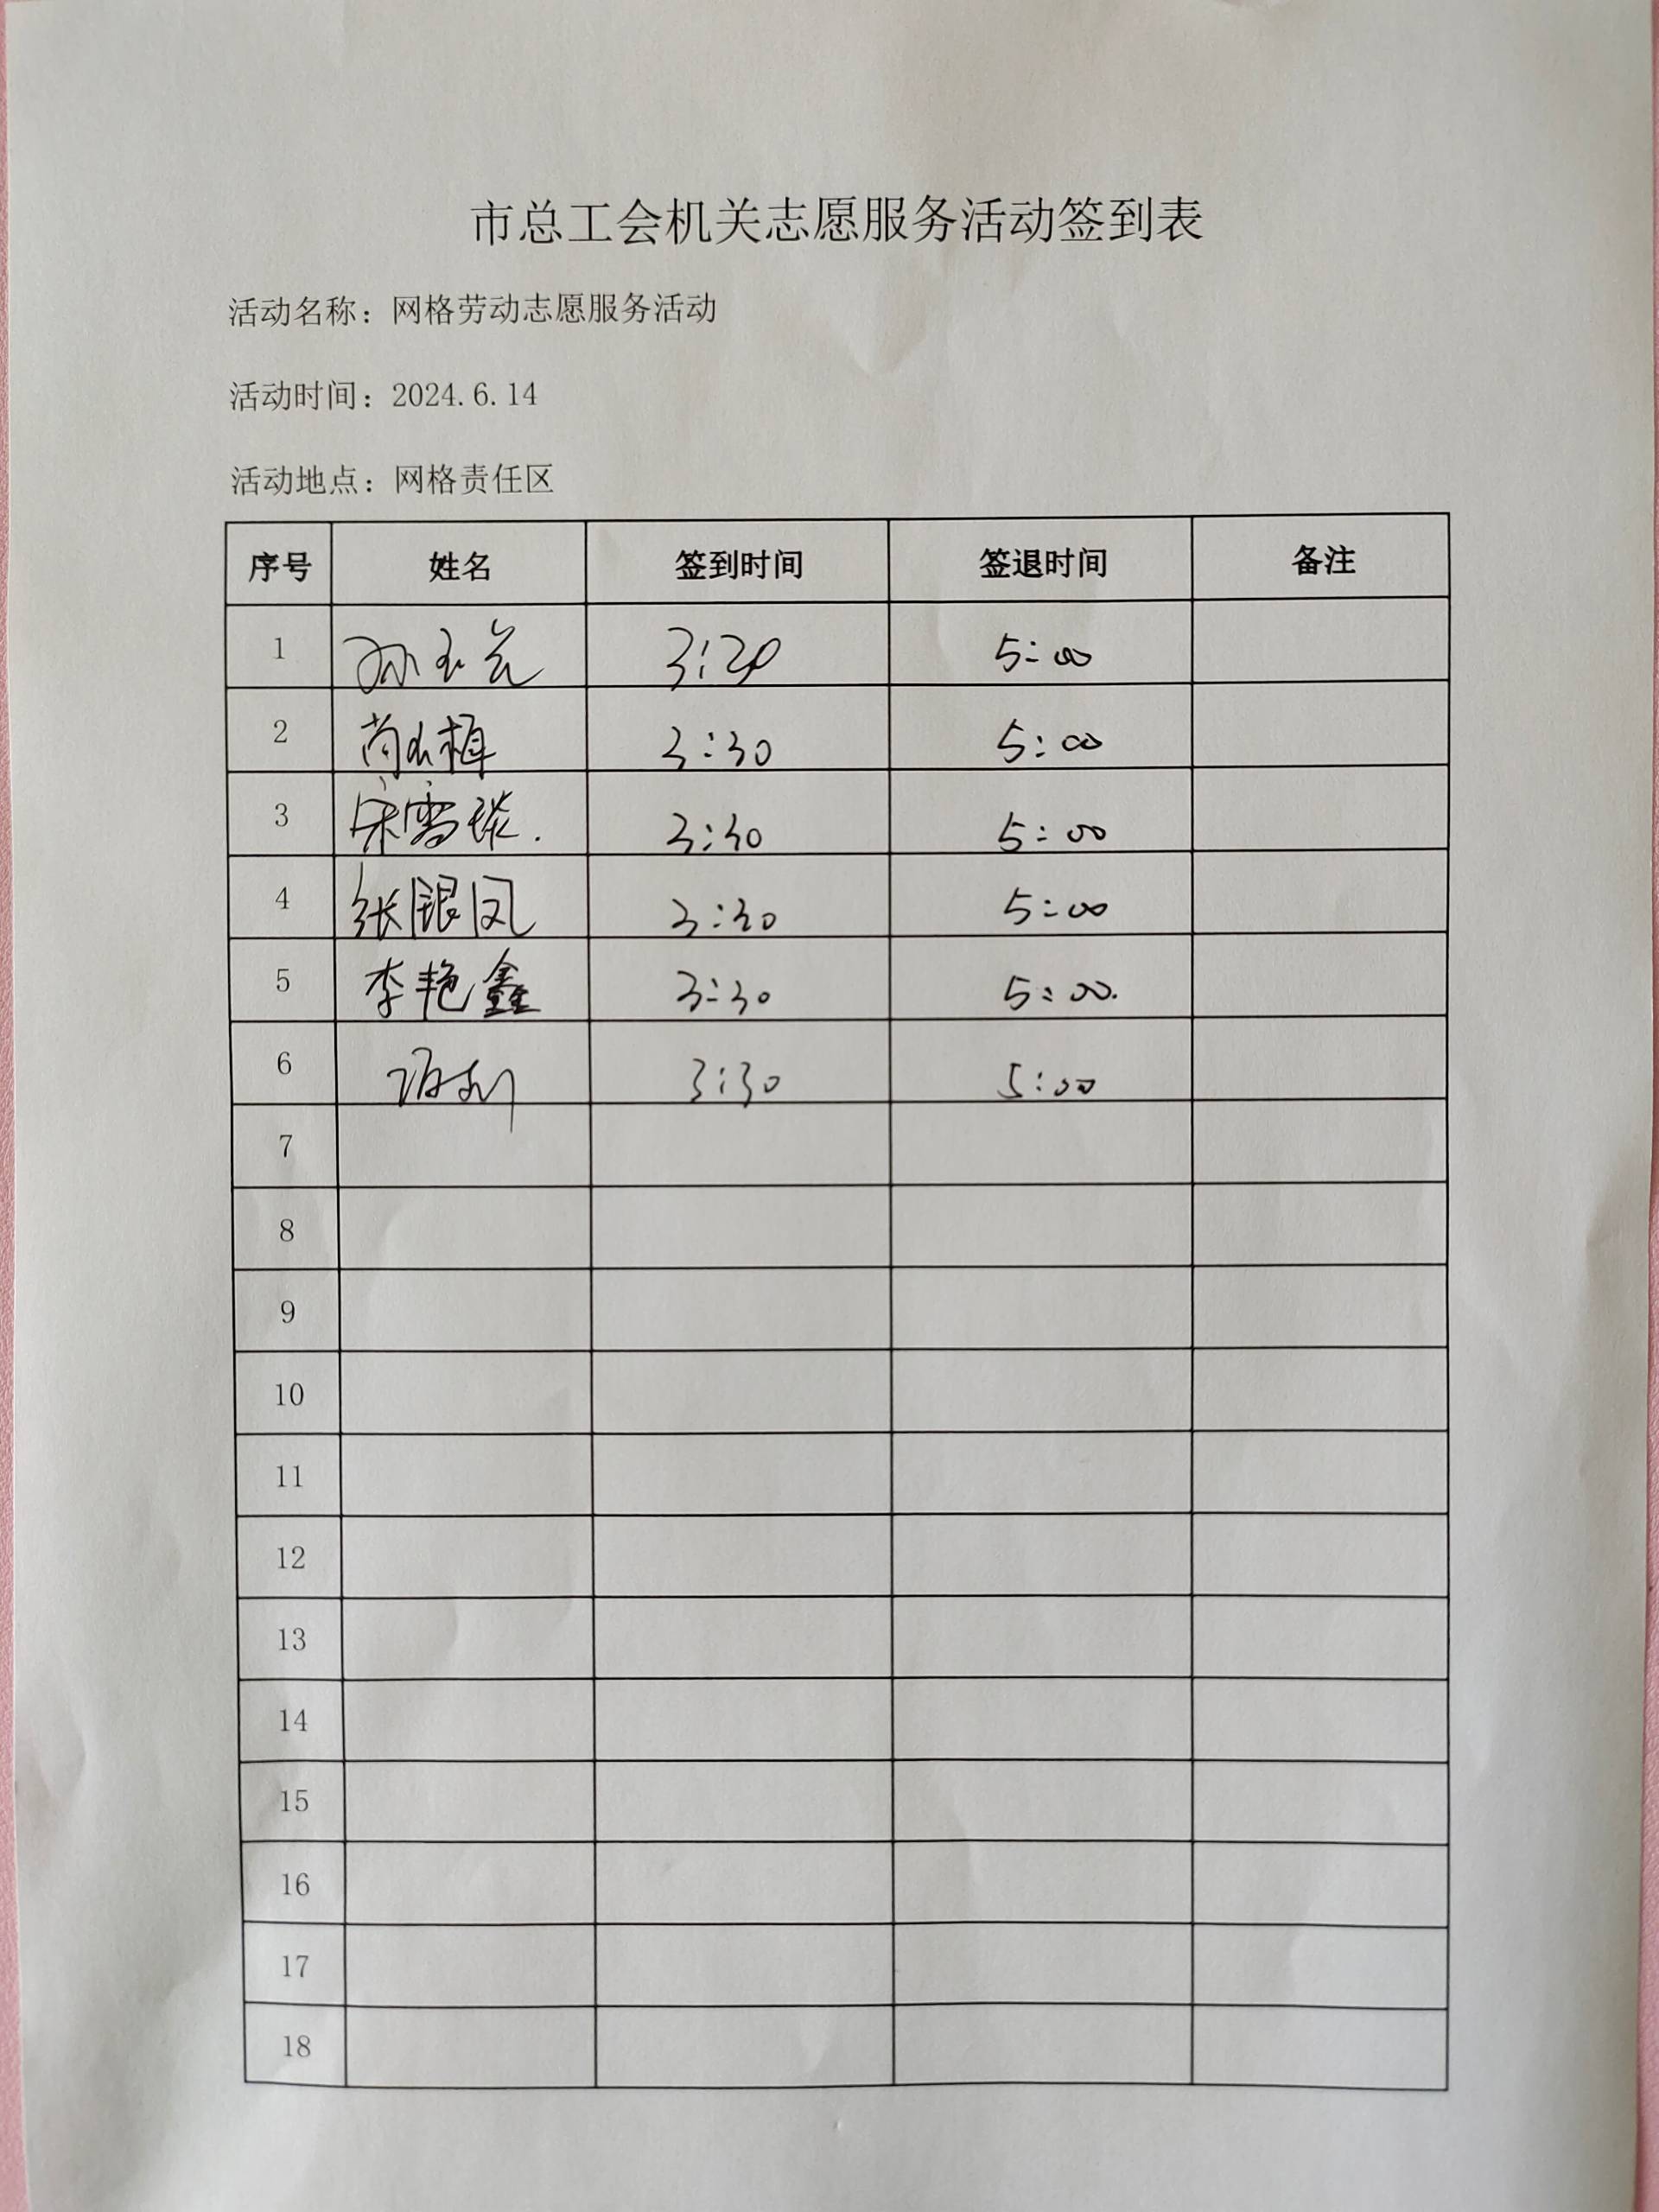 市总工会机关志愿服务活动签到表
活动名称：网格劳动志愿服务活动
活动时间：2024.6.14
活动地点：网格责任区
序号 姓名 签到时间 签退时间 备注
1 3:20 5:00
2 3:30 5:00
3 宋雪琰. 3:30 5:00
4 张银凤 3:30 5:00
5 李艳鑫 3:30 5:00.
6 3:30 5:00
7
8
9
10
11
12
13
14
15
16
17
18